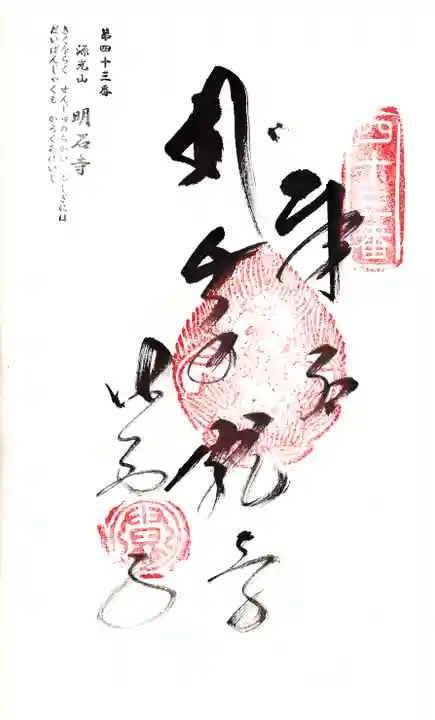 四十三番
奉納
千手観音
明石寺
第四十三番
源光山 明石寺
きくならく せんじゅのちかい ふしぎには
だいばんじゃくも かろくあげいし